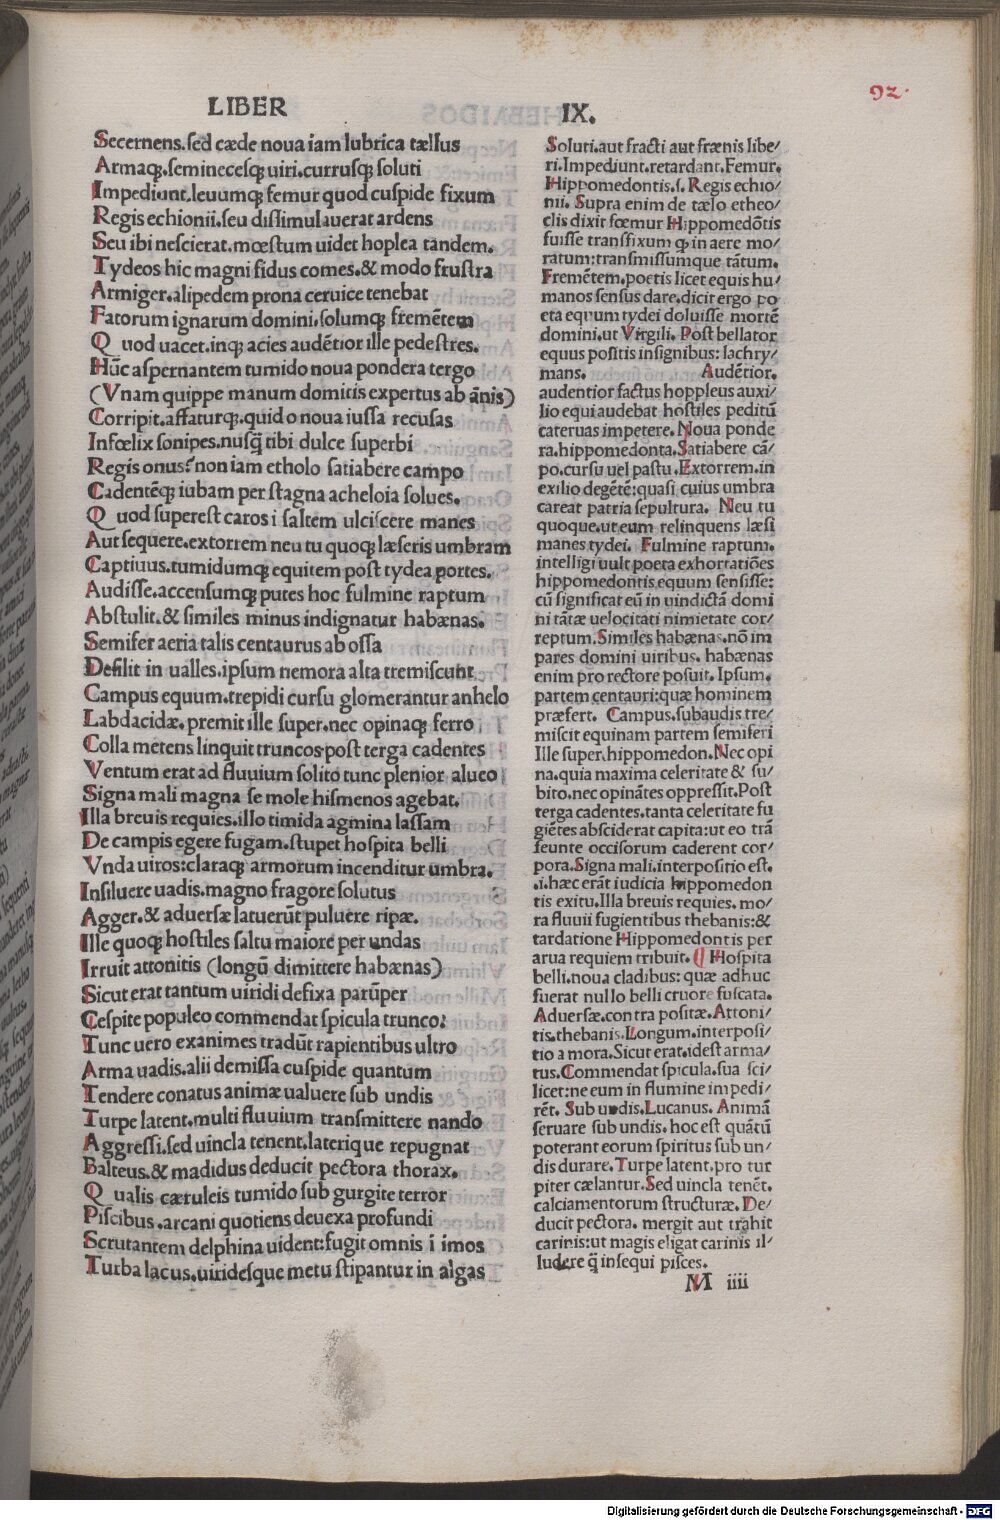 92.
LIBER IX.
Secernens.sed cæde noua iam lubrica tællus
Armaqꝫ.seminecesqꝫ uiri.currusqꝫ soluti
Impediunt.leuumqꝫ femur quod cuspide fixum
Regis echionii.seu dissimulauerat ardens
Seu ibi nescierat.mœstum uidet hoplea tandem.
Tydeos hic magni fidus comes.& modo frustra
Armiger.alipedem prona ceruice tenebat
Fatorum ignarum domini.solumqꝫ fremētem
Q uod uacet.inqꝫ acies audētior ille pedestres.
Hūc aspernantem tumido noua pondera tergo
(Vnam quippe manum domitis expertus ab ānis)
Corripit.affaturqꝫ.quid o noua iussa recusas
Infœlix sonipes.nusq̄ tibi dulce superbi
Regis onus?non iam etholo satiabere campo
Cadentēqꝫ iubam per stagna acheloia solues.
Q uod superest caros i saltem ulciscere manes
Aut sequere.extorrem neu tu quoqꝫ læseris umbram
Captiuus.tumidumqꝫ equitem post tydea portes.
Audisse.accensumqꝫ putes hoc fulmine raptum
Abstulit.& similes minus indignatur habænas.
Semifer aeria talis centaurus ab ossa
Desilit in ualles.ipsum nemora alta tremiscunt
Campus equum.trepidi cursu glomerantur anhelo
Labdacidæ.premit ille super.nec opinaqꝫ ferro
Colla metens linquit truncos post terga cadentes
Ventum erat ad fluuium solito tunc plenior alueo
Signa mali magna se mole hismenos agebat.
Illa breuis requies.illo timida agmina lassam
De campis egere fugam.stupet hospita belli
Vnda uiros:claraqꝫ armorum incenditur umbra.
Insiluere uadis.magno fragore solutus
Agger.& aduersæ latuerūt puluere ripæ.
Ille quoqꝫ hostiles saltu maiore per undas
Irruit attonitis (longū dimittere habænas)
Sicut erat tantum uiridi defixa parūper
Cespite populeo commendat spicula trunco:
Tunc uero exanimes tradūt rapientibus ultro
Arma uadis.alii demissa cuspide quantum
Tendere conatus animæ ualuere sub undis
Turpe latent.multi fluuium transmittere nando
Aggressi.sed uincla tenent.laterique repugnat
Balteus.& madidus deducit pectora thorax.
Q ualis cæruleis tumido sub gurgite terror
Piscibus.arcani quotiens deuexa profundi
Scrutantem delphina uident:fugit omnis ī imos
Turba lacus.uiridesque metu stipantur in algas
Soluti.aut fracti aut frænis libe/
ri.Impediunt.retardant.Femur.
Hippomedontis.s. Regis echio/
nii. Supra enim de tælo etheo/
clis dixit fœmur Hippomedōtis
fuisse transfixum qꝫ in aere mo/
ratum:transmissumque tātum.
Fremētem.poetis licet equis hu/
manos sensus dare.dicit ergo po
eta equum tydei doluisse mortē
domini.ut Virgili. Post bellator
equus positis insignibus: lachry/
mans. Audētior.
audentior factus hoppleus auxi/
lio equi audebat hostiles peditū
cateruas impetere. Noua ponde
ra.hippomedonta.Satiabere cā/
po.cursu uel pastu.Extorrem.in
exilio degētē:quasi cuius umbra
careat patria sepultura. Neu tu
quoque.ut eum relinquens læsi
manes tydei. Fulmine raptum.
intelligi uult poeta exhorratiōes
hippomedontis equum sensisse:
cū significat eū in uindictā domi
ni tātæ uelocitati nimietate cor/
reptum.Similes habænas.nō im
pares domini uiribus. habænas
enim pro rectore posuit. Ipsum.
partem centauri:quæ hominem
præfert. Campus.subaudis tre/
miscit equinam partem semiferi
Ille super.hippomedon.Nec opi
na.quia maxima celeritate & su/
bito.nec opinātes oppressit.Post
terga cadentes.tanta celeritate fu
giētes absciderat capita:ut eo trā
seunte occisorum caderent cor/
pora.Signa mali.interpositio est.
.i.hæc erāt iudicia hippomedon
tis exitu.Illa breuis requies. mo/
ra fluuii fugientibus thebanis:&
tardatione Hippomedontis per
arua requiem tribuit. Hospita
belli.noua cladibus: quæ adhuc
fuerat nullo belli cruore fuscata.
Aduersæ.contra positæ.Attoni/
tis.thebanis.Longum.interposi/
tio a mora.Sicut erat.idest arma/
tus.Commendat spicula.sua sci/
licet:ne eum in flumine impedi/
rēt. Sub undis.Lucanus. Animā
seruare sub undis. hoc est quātū
poterant eorum spiritus sub un/
dis durare.Turpe latent.pro tur
piter cælantur.Sed uincla tenēt.
calciamentorum structuræ. De/
ducit pectora. mergit aut trahit
carinis:ut magis eligat carinis il/
ludere q̄ insequi pisces.
M iiii
Digitalisierung gefördert durch die Deutsche Forschungsgemeinschaft - DFG